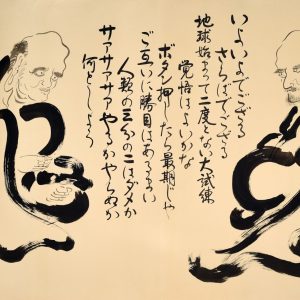 いよいよでござる
さらばでござる
地球始まって二度とない大試練
覚悟はよいかな
ボタン押したら最期じゃ
ご互いに勝目はあるまい
人類の三分の二はダメか
サアサアサアやるかやらぬか
何としよう